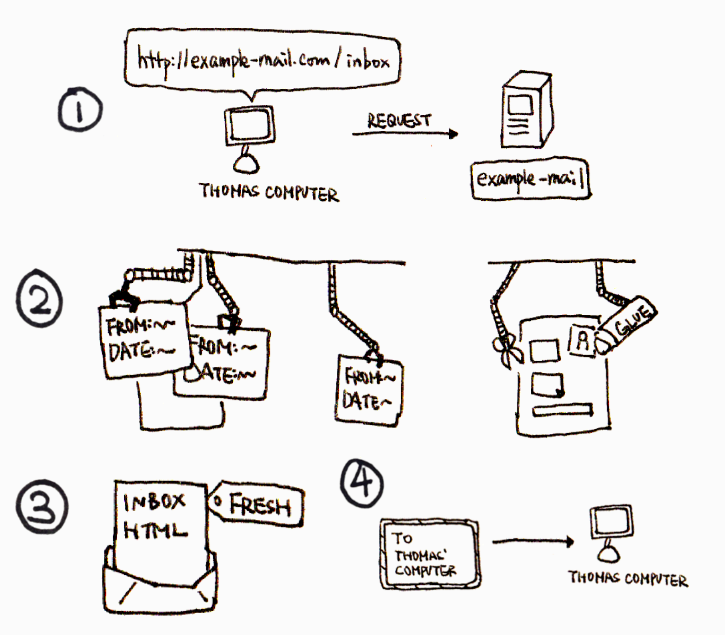 ①
http://example-mail.com/inbox
REQUEST
THOMAS COMPUTER
example-mail
②
FROM:~~
DATE:~
FROM:~
DATE:~~
FROM:~
DATE~
A
GLUE
③
INBOX
HTML
FRESH
④
TO
THOMAS'
COMPUTER
THOMAS COMPUTER